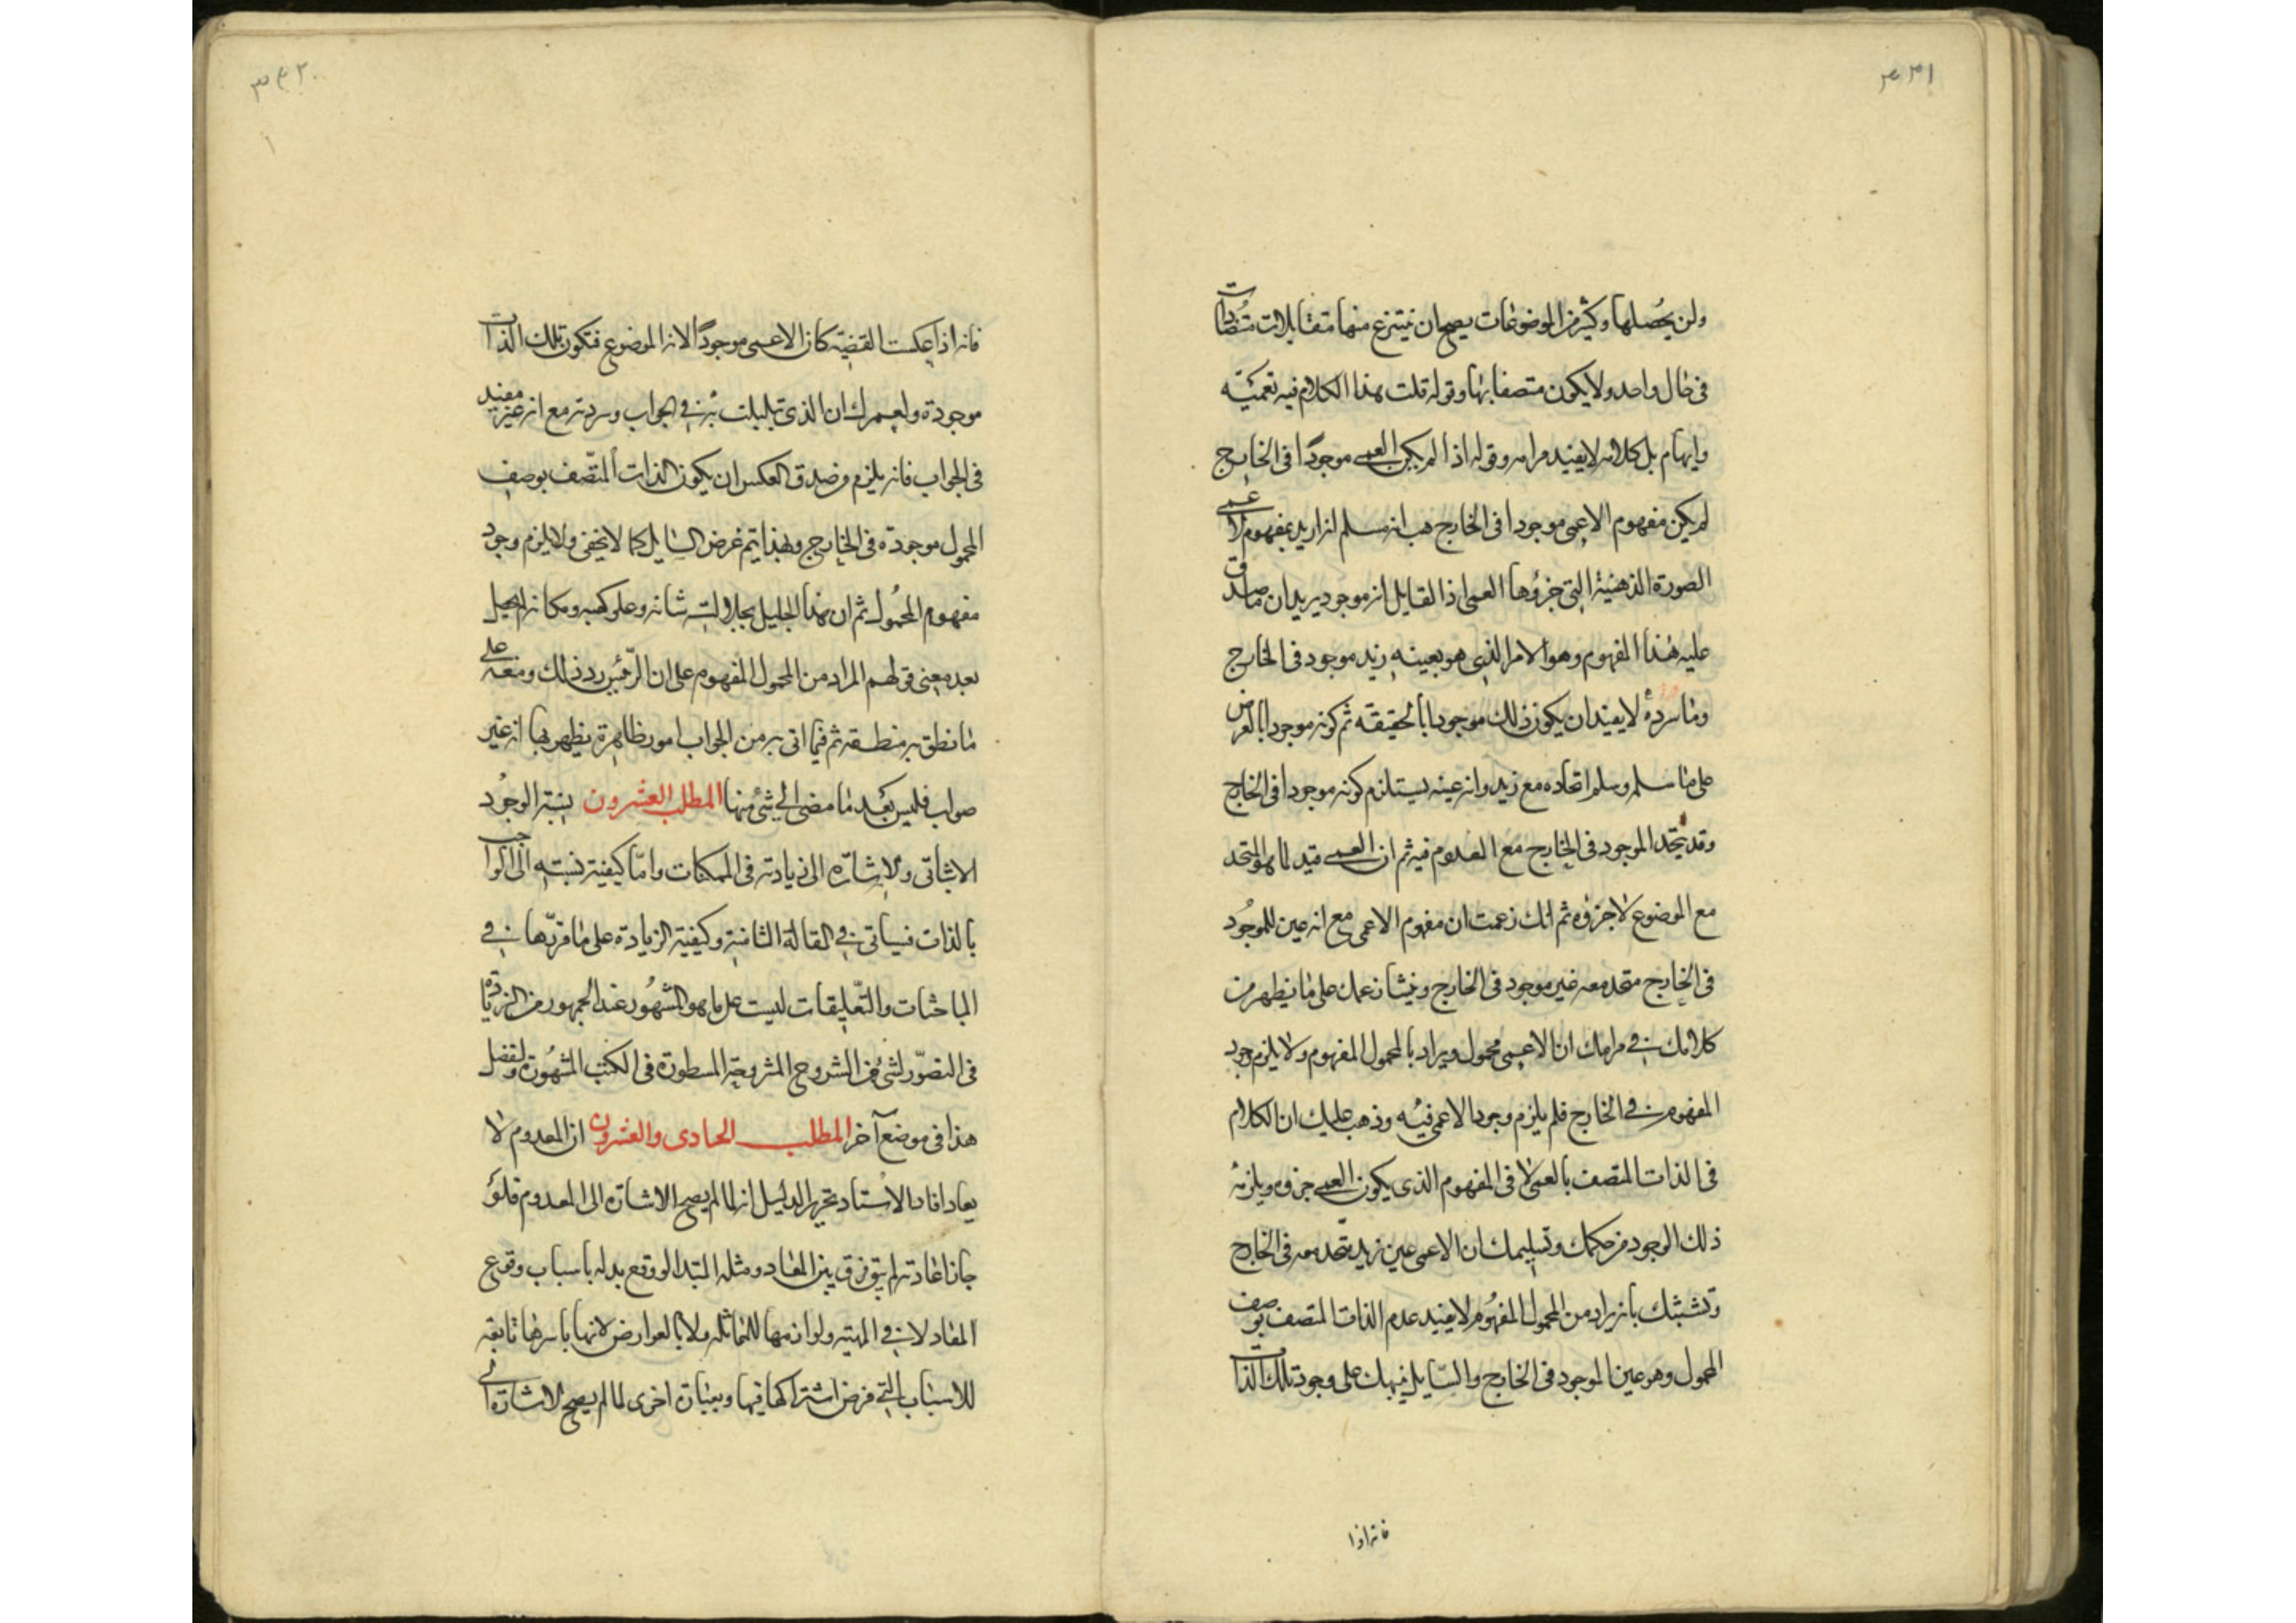 ٣٣١
ولن يحصلها وكثير من الموضوعات يصح ان ينتزع منها متقابلات متضادات
فى حال واحد ولا يكون متصفا بها وقوله قلت هذا الكلام فيه تعمية
وايهام بل كلامه لا يفيد مرامه وقوله اذا لم يكن العمى موجودا فى الخارج
لم يكن مفهوم الاعمى موجودا فى الخارج هب انه مسلم ان اريد بمفهوم الاعمى
الصورة الذهنية التى جزؤها العمى اذ القايل انه موجود يريد ان ما صدق
عليه هذا المفهوم وهو الامر الذى هو بعينه زيد موجود فى الخارج
وما سرده لا يفيد ان يكون ذلك موجودا بالحقيقه ثم كونه موجودا بالعرض
على ما سلمه وسلم اتحاده مع زيد وانه عينه يستلزم كونه موجودا فى الخارج
وقد يتحد الموجود فى الخارج مع المعدوم فيه ثم ان العمى قيد لما هو المتحد
مع الموضوع لا جزؤه ثم انك زعمت ان مفهوم الاعمى مع انه عين للموجود
فى الخارج متحد معه غير موجود فى الخارج على ما يظهر من
كلامك فى مرامك ان الاعمى محمول ويراد بالمحمول المفهوم ولا يلزم وجود
المفهوم فى الخارج فلم يلزم وجود الاعمى فيه وذهب عليك ان الكلام
فى الذات المتصف بالعمى لا فى المفهوم الذى يكون العمى جزوه ويلزمه
ذلك الوجود من حكمك وتسليمك ان الاعمى عين زيد متحد معه فى الخارج
وتشبثك بانه يراد من المحمول المفهوم لا يفيد عدم الذات المتصف بوصف
المحمول وهو عين الموجود فى الخارج والسايل ينبهك على وجود تلك الذات
فانه اذا
٣٤٢
فانه اذا عكست القضية كان الاعمى موجودا لانه الموضوع فتكون تلك الذات
موجودة ولعمرك ان الذى تبلبلت به فى الجواب وسردته مع انه غير مفيد
فى الجواب فانه يلزم من صدق العكس ان يكون الذات المتصف بوصف
المحمول موجودة فى الخارج وبهذا يتم غرض السايل كما لا يخفى ولا يلزم وجود
مفهوم المحمول ثم ان هذا الجليل بجلالة شانه وعلو كعبه ومكانه لم يحصل
بعد معنى قولهم المراد من المحمول المفهوم على ان الرئيس رد ذلك ومنعه على
ما نطق به منطقه ثم فيما اتى به من الجواب امور ظاهرة يظهر بها انه غير
صواب فليس بعد ما مضى الى شئ منها المطلب العشرون نسبة الوجود
الاثباتى والاشارة الى زيادته فى الممكنات واما كيفية نسبته الى الواجب
بالذات فسياتى فى المقالة الثانية وكيفية الزيادة على ما قربها فى
المباحثات والتعليقات ليست على ما هو المشهور عند الجمهور من الزيادة
فى التصور لشئ من الشروح المشروحة المسطورة فى الكتب المشهورة ولنفصل
هذا فى موضع آخر المطلب الحادى والعشرون ان المعدوم لا
يعاد افاد الاستاد تحرير الدليل انه لما لم يصح الاشارة الى المعدوم فلو
جاز اعادته لم يبق فرق بين المعاد ومثله المبتدا لو وقع بدله باسباب وقوع
المعاد لا فى المهية ولوازمها للمماثلة ولا بالعوارض لانها باسرها تابعة
للاسباب التى فرض اشتراكها فيها وبعبارة اخرى لما لم يصح الاشارة الى